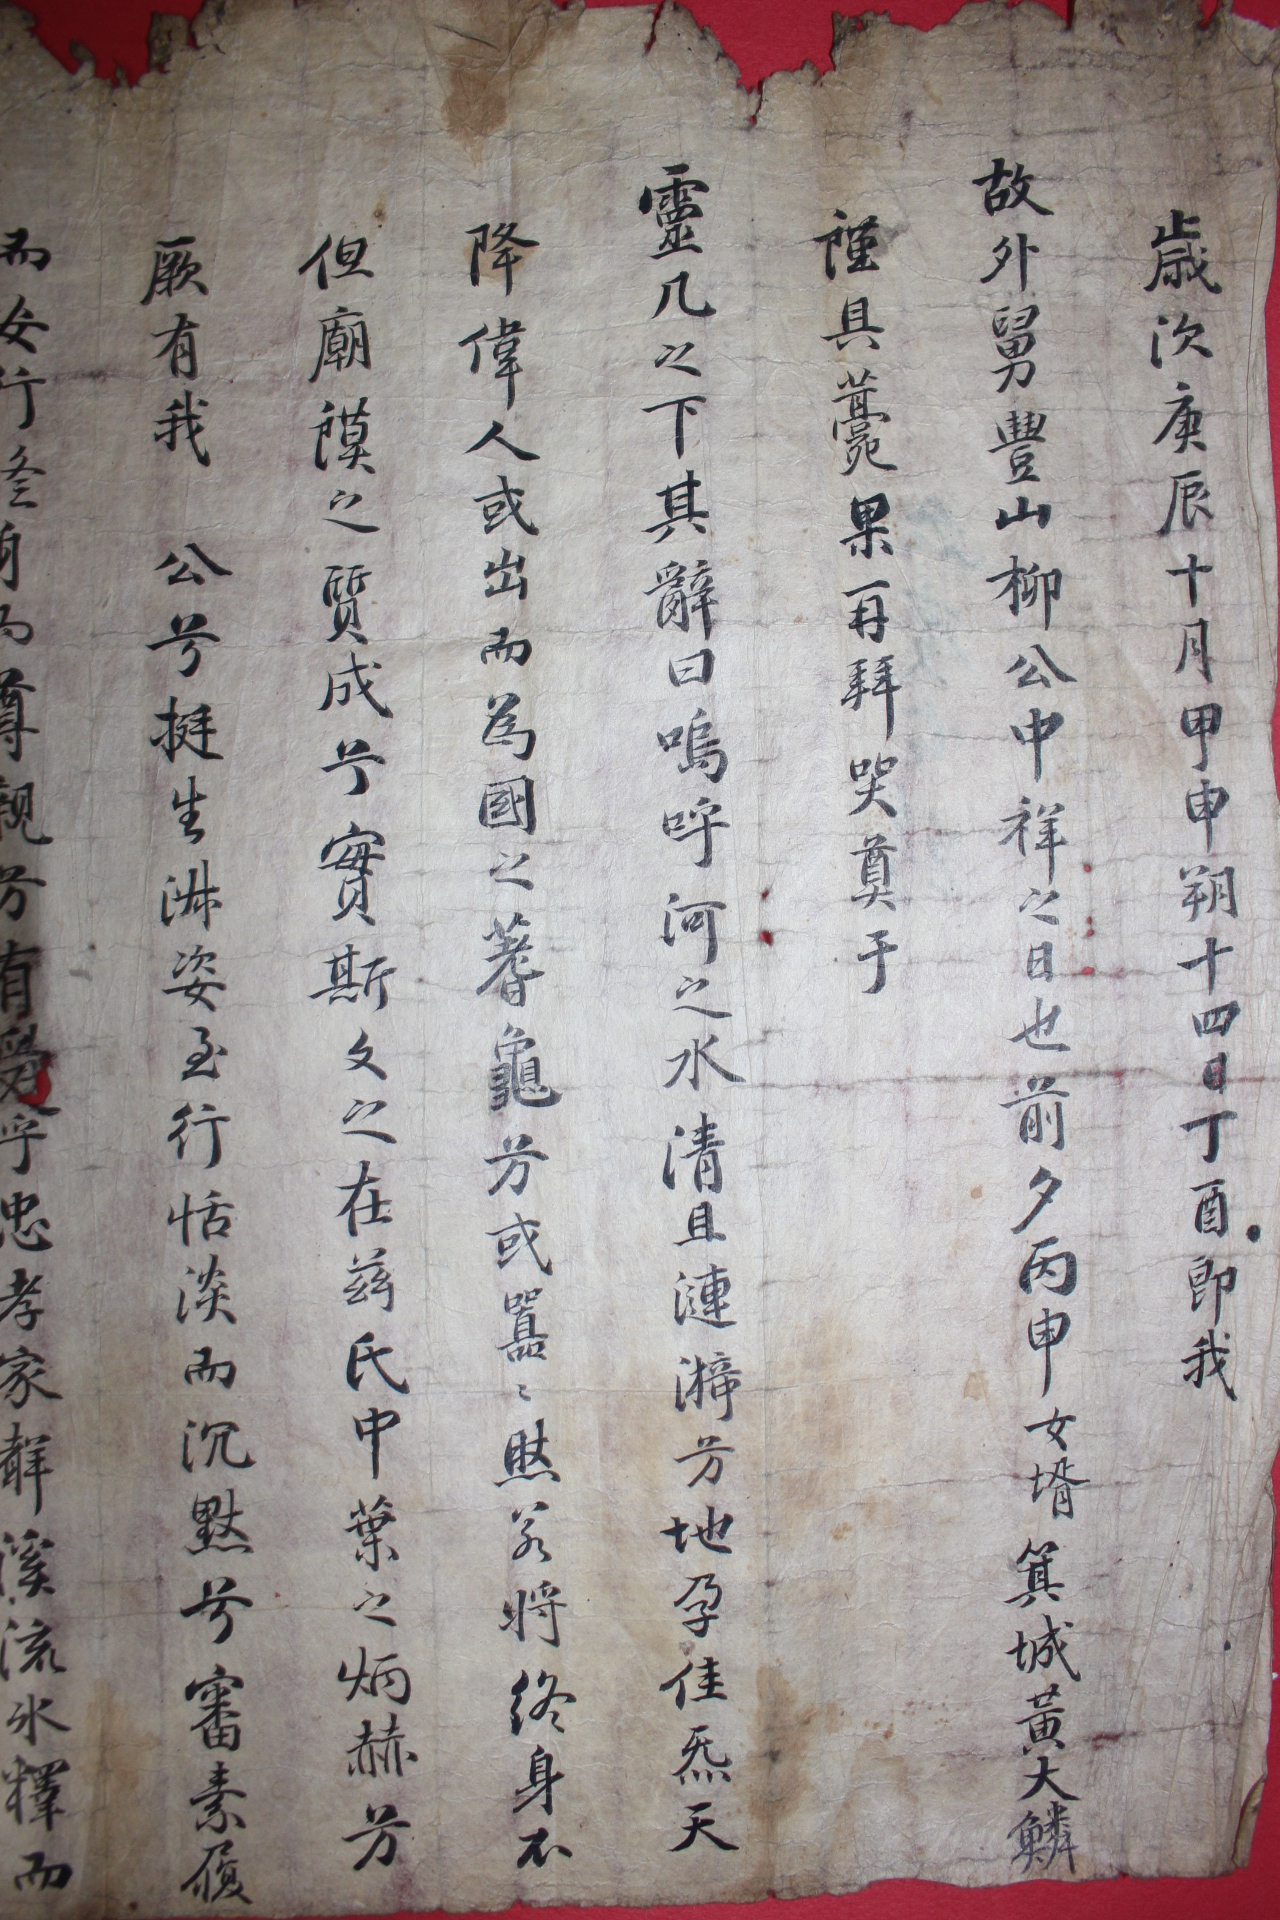 歲次庚辰十月甲申朔十四日丁酉卽我
故外舅豐山柳公中祥之日也前夕丙申女壻箕城黃大鱗
謹具薧果再拜哭奠于
靈几之下其辭曰嗚呼河之水清且漣漪兮地孕佳炁天
降偉人或出而爲國之蓍龜兮或嚚〻默若將終身不
但廟謨之質成兮實斯文之在茲氏中葉之炳赫兮
厥有我 公兮挺生淋姿至行恬淡而沉默兮審素履
而女行 爲尊親兮有 乎忠孝家聲溪流氷釋而